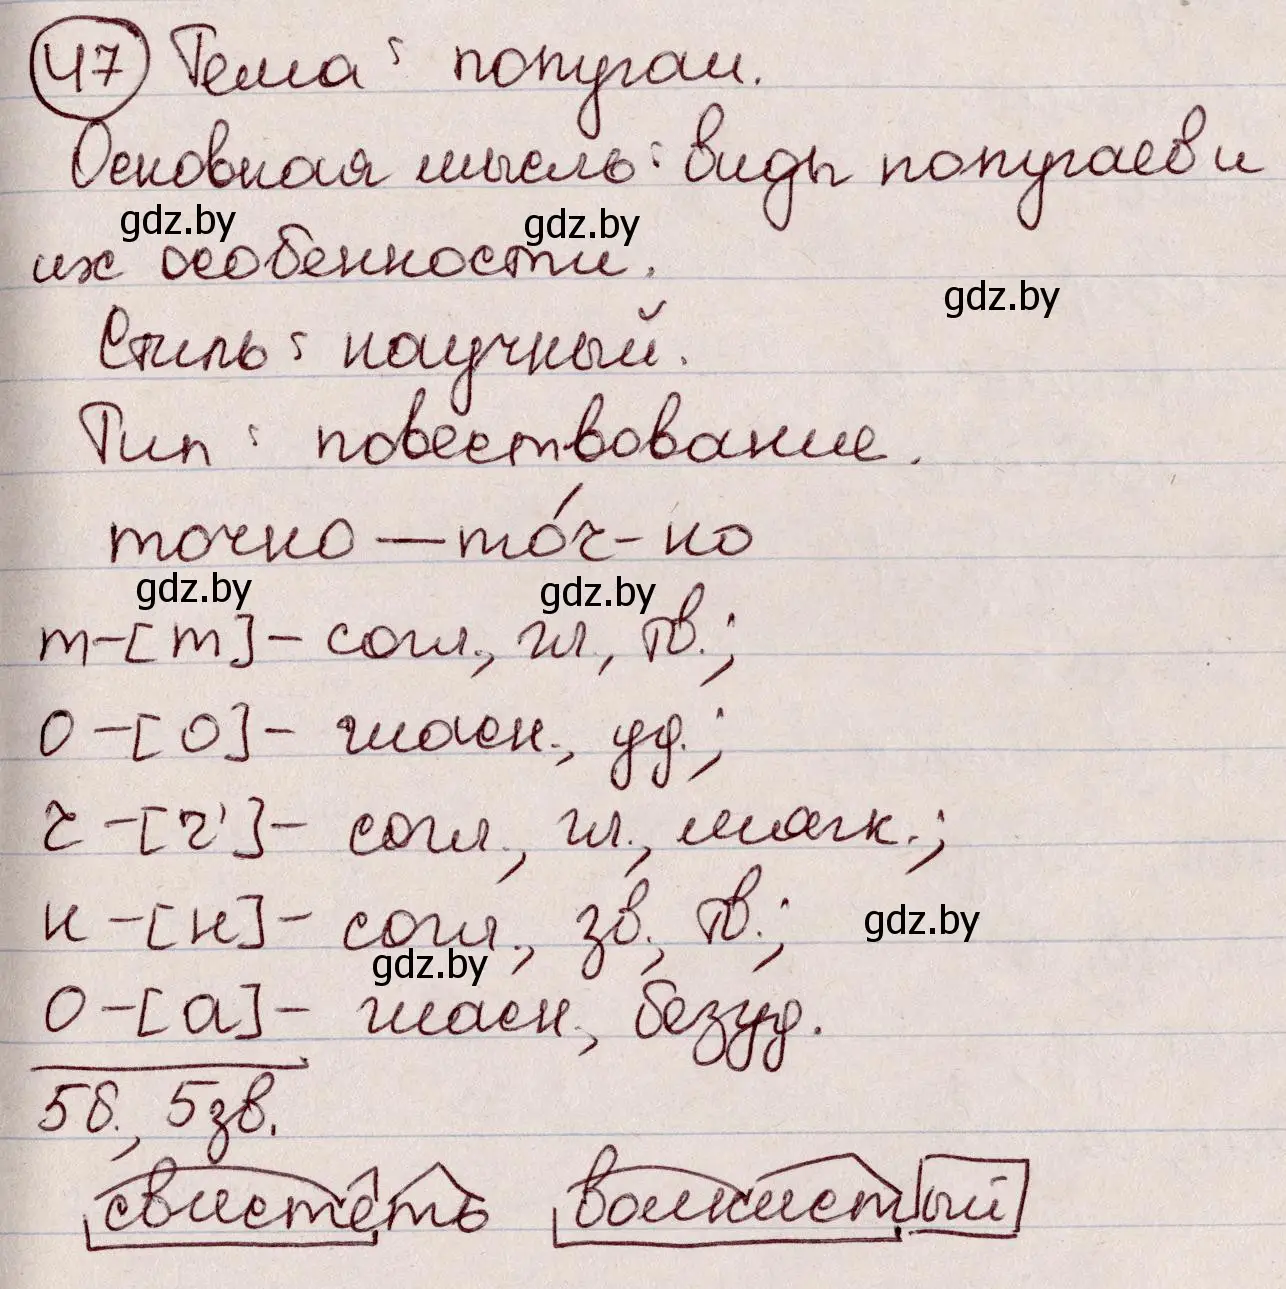 47 Тема: попугаи.
Основная мысль: виды попугаев и
gdz.by gdz.by
их особенности.
gdz.by
Стиль: научный.
Тип: повествование.
точно — то́ч-но
gdz.by gdz.by
т-[т]- согл., гл., тв.;
о-[о]- гласн., уд.;
ч-[ч']- согл., гл., мягк.;
н-[н]- согл., зв., тв.;
gdz.by
gdz.by
о-[а]- гласн., безуд.
5б., 5зв.
свистеть волнистый